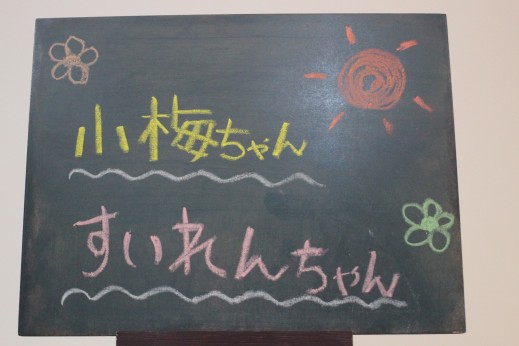 小梅ちゃん
すいれんちゃん